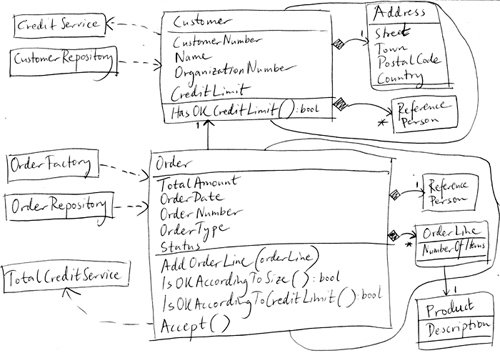 Credit Service
Customer Repository
Customer
CustomerNumber
Name
OrganizationNumber
CreditLimit
HasOKCreditLimit():bool
1
Address
Street
Town
PostalCode
Country
1
*
Reference
Person
Order Factory
Order Repository
TotalCreditService
Order
TotalAmount
OrderDate
OrderNumber
OrderType
Status
AddOrderLine(orderLine)
IsOKAccordingToSize():bool
IsOKAccordingToCreditLimit():bool
Accept()
1
Reference
Person
*
OrderLine
NumberOfItems
1
Product
Description